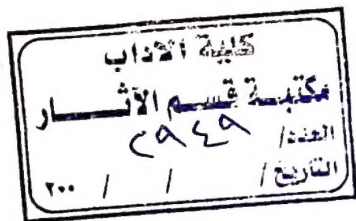 كلية الآداب
مكتبة قسم الآثار
العدد/ ٢٩٤٩
التاريخ / / / ٢٠٠